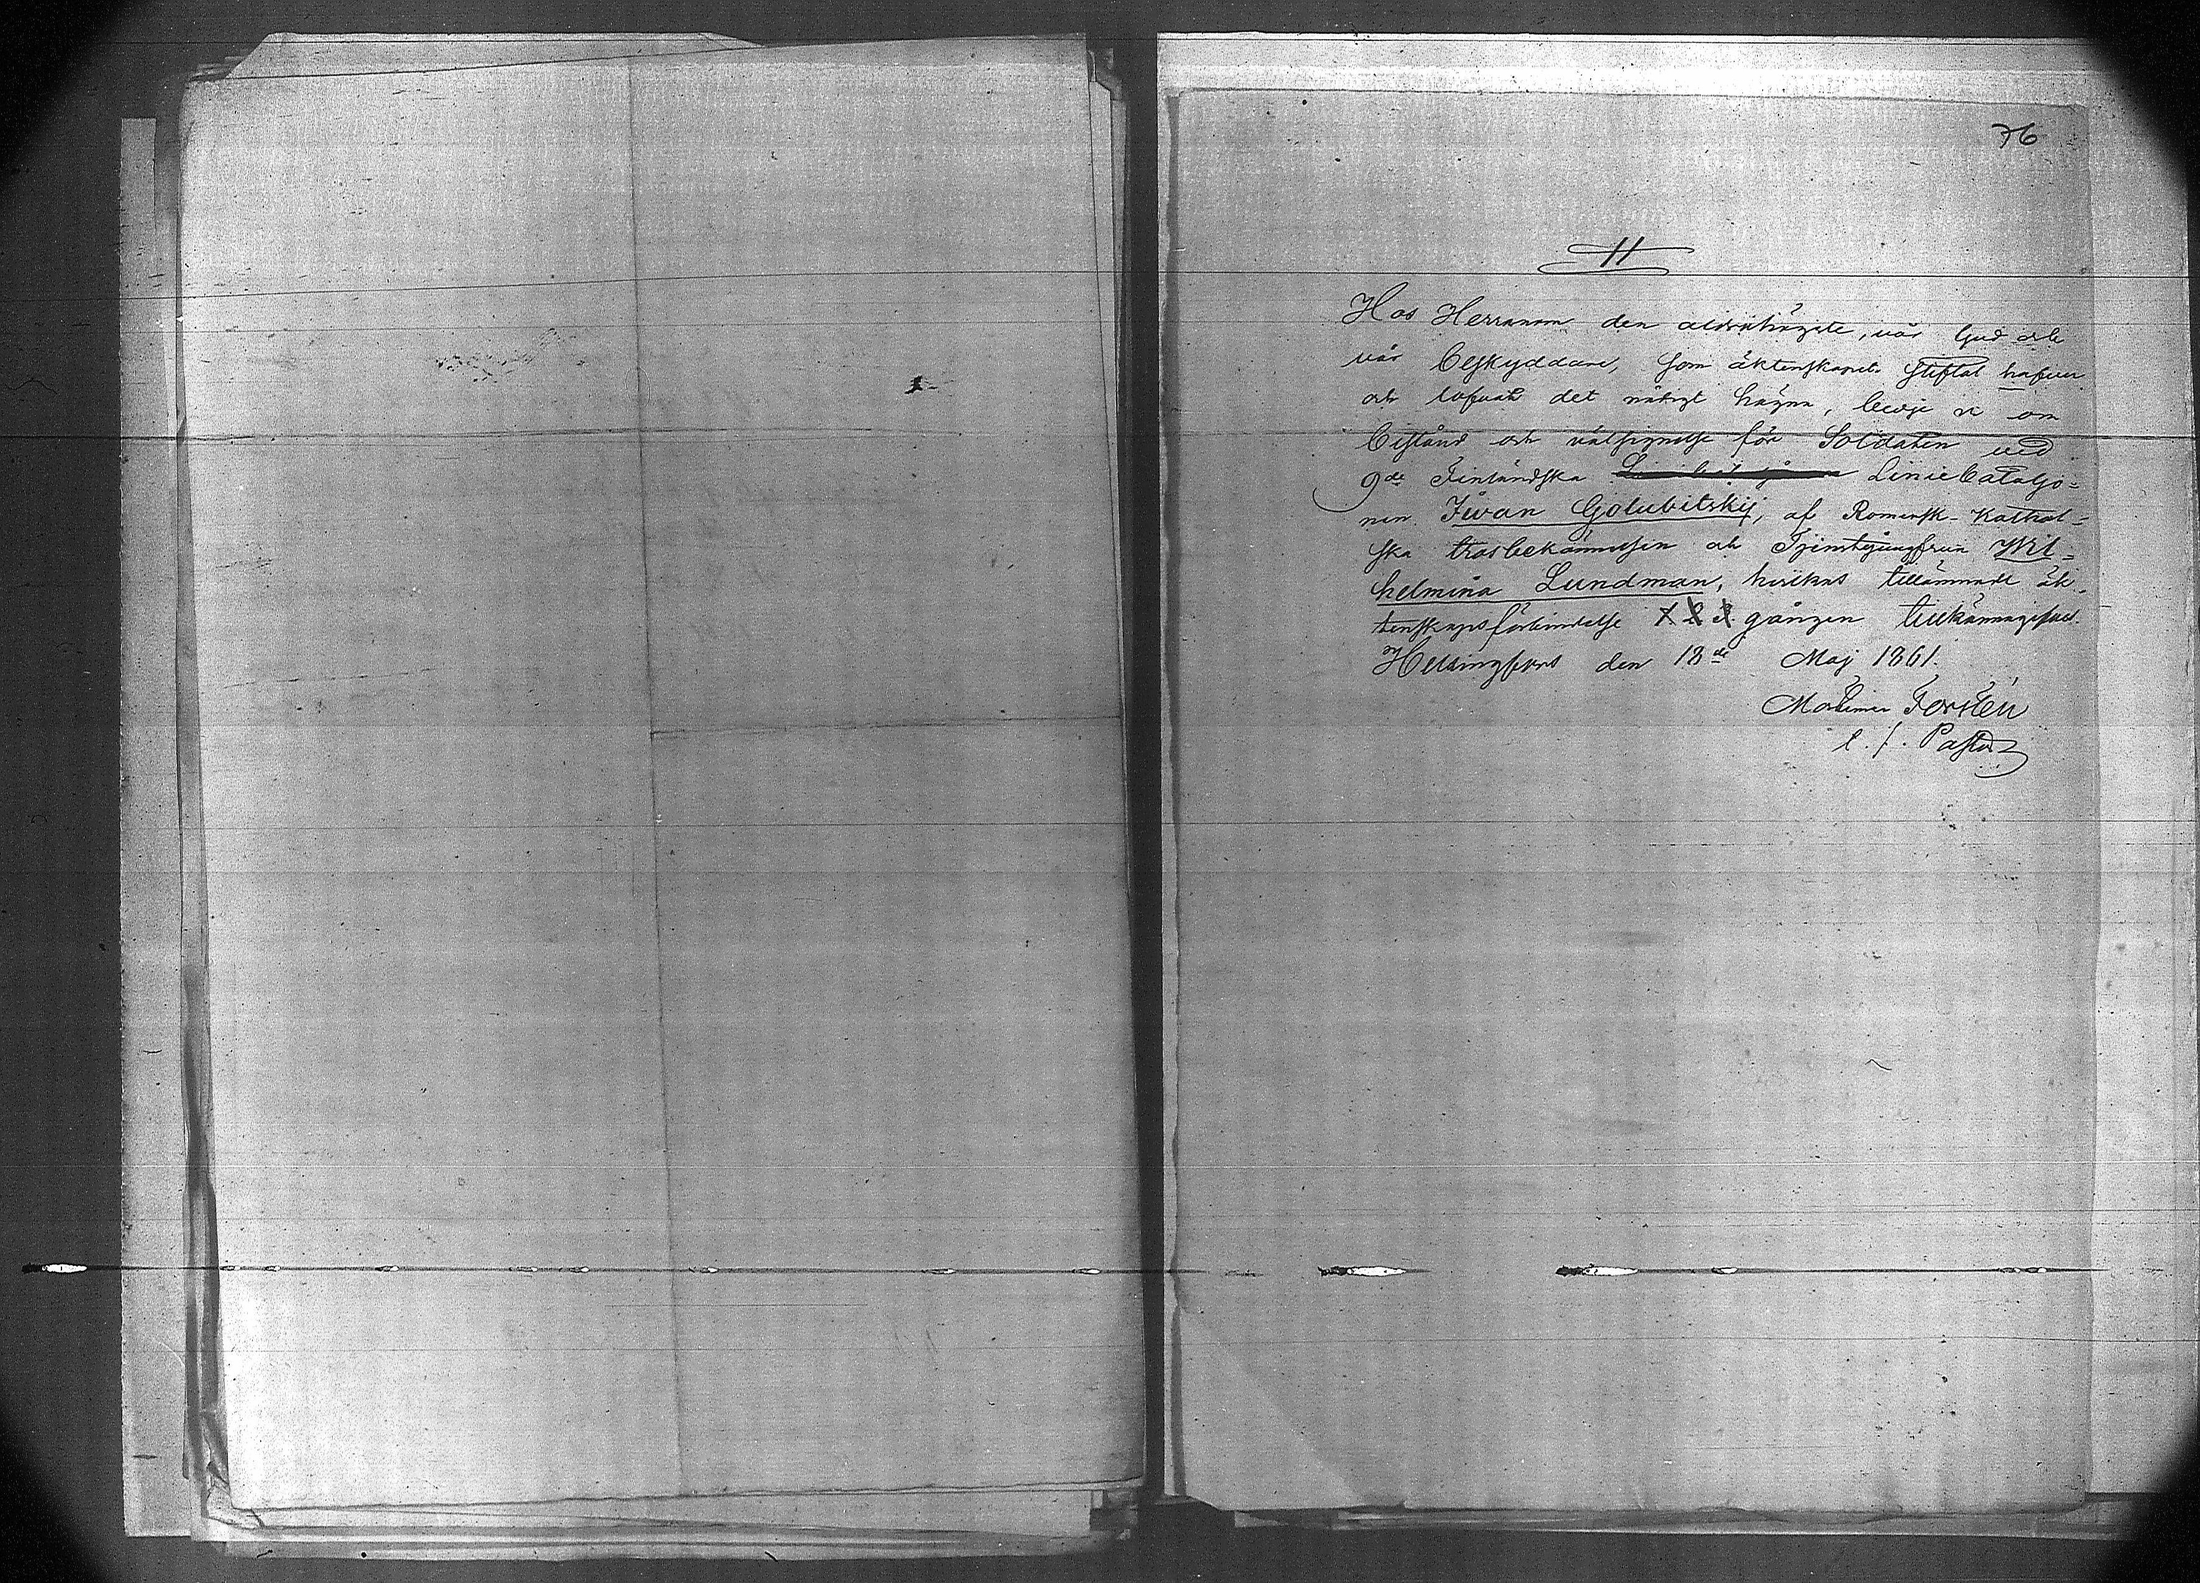 76
11
Hos Herranom den aldrahögste, vår Gud och
vår beskyddare, som äktenskapet stiftat hafver
och lofvat det nådigt hägna, bedje vi om
bistånd och välsignelse för Soldaten ved
9de Finländska Liniebataljo=
nen Iwan Golubitskij, af Romersk-Kathol=
ska trosbekännelsen och Tjenstejungfrun Wil=
helmina Lundman, hvilkas tillämnade äk=
tenskapsförbindelse 1 2 3 gången tillkännagifves.
Helsingfors den 18de Maj 1861.
Mortimer Forstén
t. f. Pastor